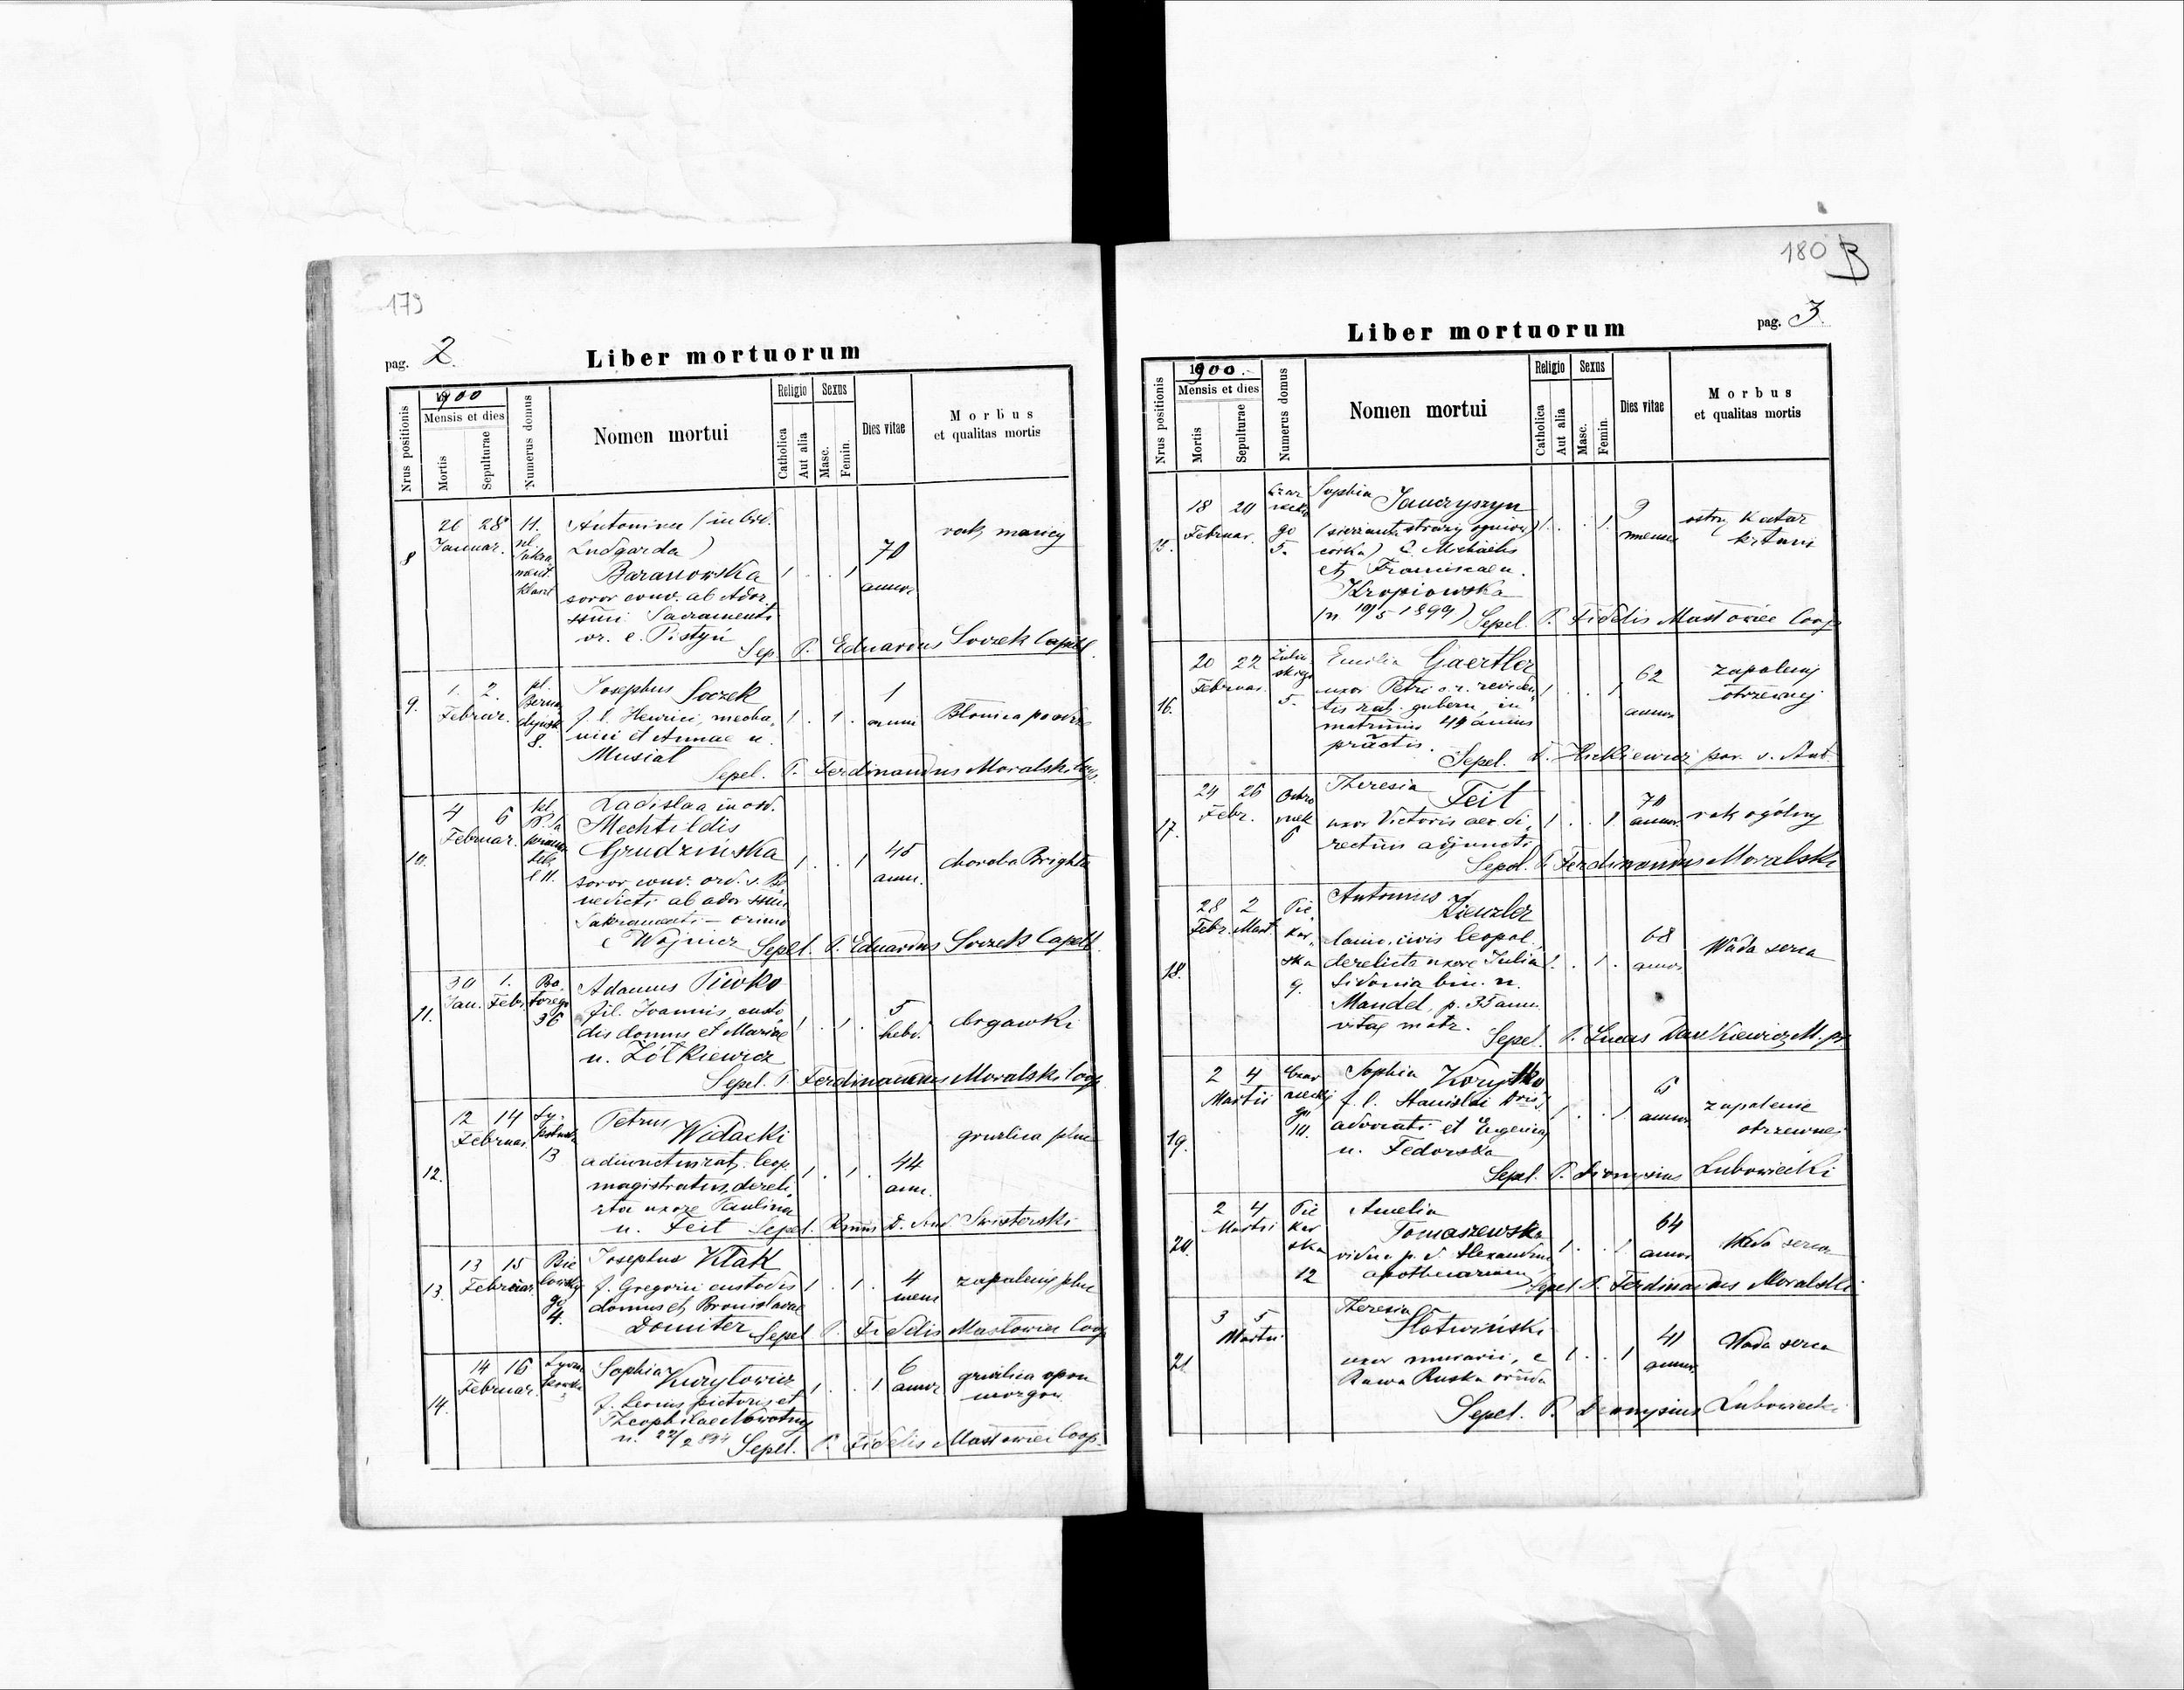 179
pag. 2.
Liber mortuorum
Nrus positionis
1900
Mensis et dies
Mortis
Sepulturae
Numerus domus
Nomen mortui
Religio
Catholica
Aut alia
Sexus
Masc.
Femin.
Dies vitae
Morbus
et qualitas mortis
8
26 28
Januar.
11.
pl.
Antonina (in ord.
Ludgarda)
Baranowska
soror conv. ab Ador.
ssmi Sacramenti
or. e. Pistyń
1 . . 1
70
annor.
rak macicy
Sep. P. Eduardus Soczek Capell.
9.
1. 2.
Februar.
pl.
Berna
dyńsk
8.
Josephus Soczek
f. l. Henrici, mecha,
nici et Annae n.
Musiał
1 . 1 .
1
anni
Błonica
Sepel. P. Ferdinandus Moralski Coop.
10.
4 6
Februar.
Ladislaa in ord.
Mechtildis
Grudzińska
soror conv. ord. s. Be,
nedicti ab ador ssmi
Sakramenti - oriund
e Wojnicz
1 . . 1
45
ann.
choroba Brighta
Sepel. P. Eduardus Soczek Capell
11.
30 1.
Jan. Febr.
Ba
torego
36
Adamus Piwko
fil. Joannis, custo
dis domus et Mariae
n. Żółkiewicz
1 . 1 .
5
hebd.
drgawki
Sepel. P. Ferdinandus Moralski Coop
12.
12 14
Februar.
13
Petrus
Widacki
adiunctus rat. leop.
magistratus, dereli,
cta uxore Paulina
n. Feit
1 . 1 .
44
ann.
gruźlica płuc
Sepel. Rmus D. Swisterski
13.
13 15
Februar.
Bie
lowskie
go
4.
Josephus Kłak
f. Gregorii custodis
domus et Bronislavae
Domiter
1 . 1 .
4
mens
zapaleniy płuc
Sepel P. Fidelis Mastowiec Coop
14.
14 16
Februar.
Sophia Kuryłowicz
f. Leonis pictoris et
Theophilae Nowotny
n. 22/2 894
1 . . 1
6
annor
gruźlica opon
mózgow.
Sepel. P. Fidelis Mastowiec Coop.
180 B
Liber mortuorum
pag. 3.
Nrus positionis
1900.
Mensis et dies
Mortis
Sepulturae
Numerus domus
Nomen mortui
Religio
Catholica
Aut alia
Sexus
Masc.
Femin.
Dies vitae
Morbus
et qualitas mortis
15.
18 20
Februar.
Czar
niecke
go
5.
Sophia Jauczyszyn
(sierżanta straży ogniow.
córka) f. Michaelis
et Franciscae n.
Kropiowska
(n 19/5 1899)
1 . . 1
9
mensi
ostry katar
krtani
Sepel. P. Fidelis Mastowiec Coop
16.
20 22
Februar.
Zuliń
skiego
5.
Emilia Gaertler
uxor Petri c. r. reviden,
tis rat. gubern., in
matrimio 44 annis
practis.
1 . . 1
62
annor
zapaleniy
otrzewnej
Sepel. par. s. Ant
17.
24 26
Febr.
Ochro
nek
6
Theresia Feit
uxor Victoris aer di,
rectiis adjuncti
1 . . 1
70
annor.
rak ogólny
Sepel. P. Ferdinandus Moralski
18.
28 2
Febr. Mart.
Pie
kar,
ska
9.
Antonius
Kienzler
lanio, civis leopol.
derelicta uxore Julia
Sidonia bin. n.
Mandel p. 35 ann.
vitae matr.
1 . 1 .
68
annor.
Wada serca
Sepel. P. Lucas Dankiewicz M. pr.
19.
2 4
Martii
Czar
nieckie
go
10.
Sophia Korytko
f. l. Stanislai Dris,
advocati et Eugeniae
n. Fedorska
1 . . 1
6
annor
zapalenie
otrzewnej
Sepel. P. Dionysius Lubowiecki
20.
2 4
Martii
Pie
kar
ska
12
Amelia
Tomaszewska
vidua p. d. Alexandrum
apothecarium
1 . . 1
64
annor
Wada serca
Sepel. P. Ferdinandus Moralski
21.
3 5
Martii
Theresia
Słotwiński
uxor murarii, e
Rawa Ruska oriunda
1 . . 1
41
annor.
Wada serca
Sepel. P. Dionysius Lubowiecki